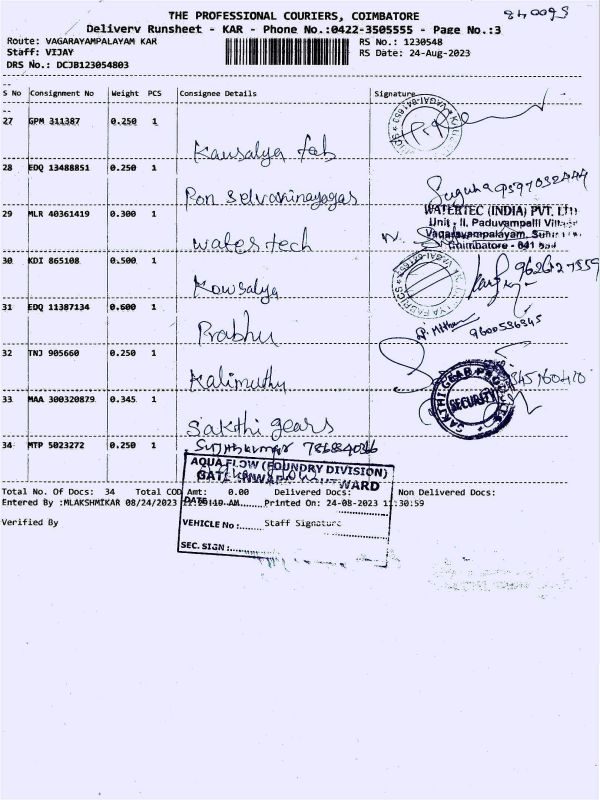 THE PROFESSIONAL COURIERS, COIMBATORE
Delivery Runsheet - KAR - Phone No.:0422-3505555 - Page No.:3
Route: VAGARAYAMPALAYAM KAR
RS No.: 1230548
Staff: VIJAY
RS Date: 24-Aug-2023
DRS No.: DCJB123054803
S No Consignment No Weight PCS Consignee Details Signature
27 GPM 311387 0.250 1
Kausalya fab
28 EDQ 13488851 0.250 1
Pon selvavinayagas
Suguna
29 MLR 40361419 0.300 1
WATERTEC (INDIA) PVT. LTD
Unit - II, Paduvampalli Village
Vagarayampalayam,
Coimbatore - 641
water tech
30 KDI 865108 0.500 1
Kowsalya
31 EDQ 11387134 0.600 1
Prabhu
9600536345
32 TNJ 905660 0.250 1
Kalimuthu
33 MAA 300320879 0.345 1
SAKTHI GEAR PRODUCTS
SECURITY
Sakthi gears
34 MTP 5023272 0.250 1
AQUA FLOW (FOUNDRY DIVISION)
GATE INWARD / OUTWARD
Total No. Of Docs: 34 Total COD Amt: 0.00 Delivered Docs: Non Delivered Docs:
Entered By :MLAKSHMIKAR 08/24/2023 AM Printed On: 24-08-2023 11:30:59
DATE
Verified By
VEHICLE No : Staff Signature
SEC. SIGN :